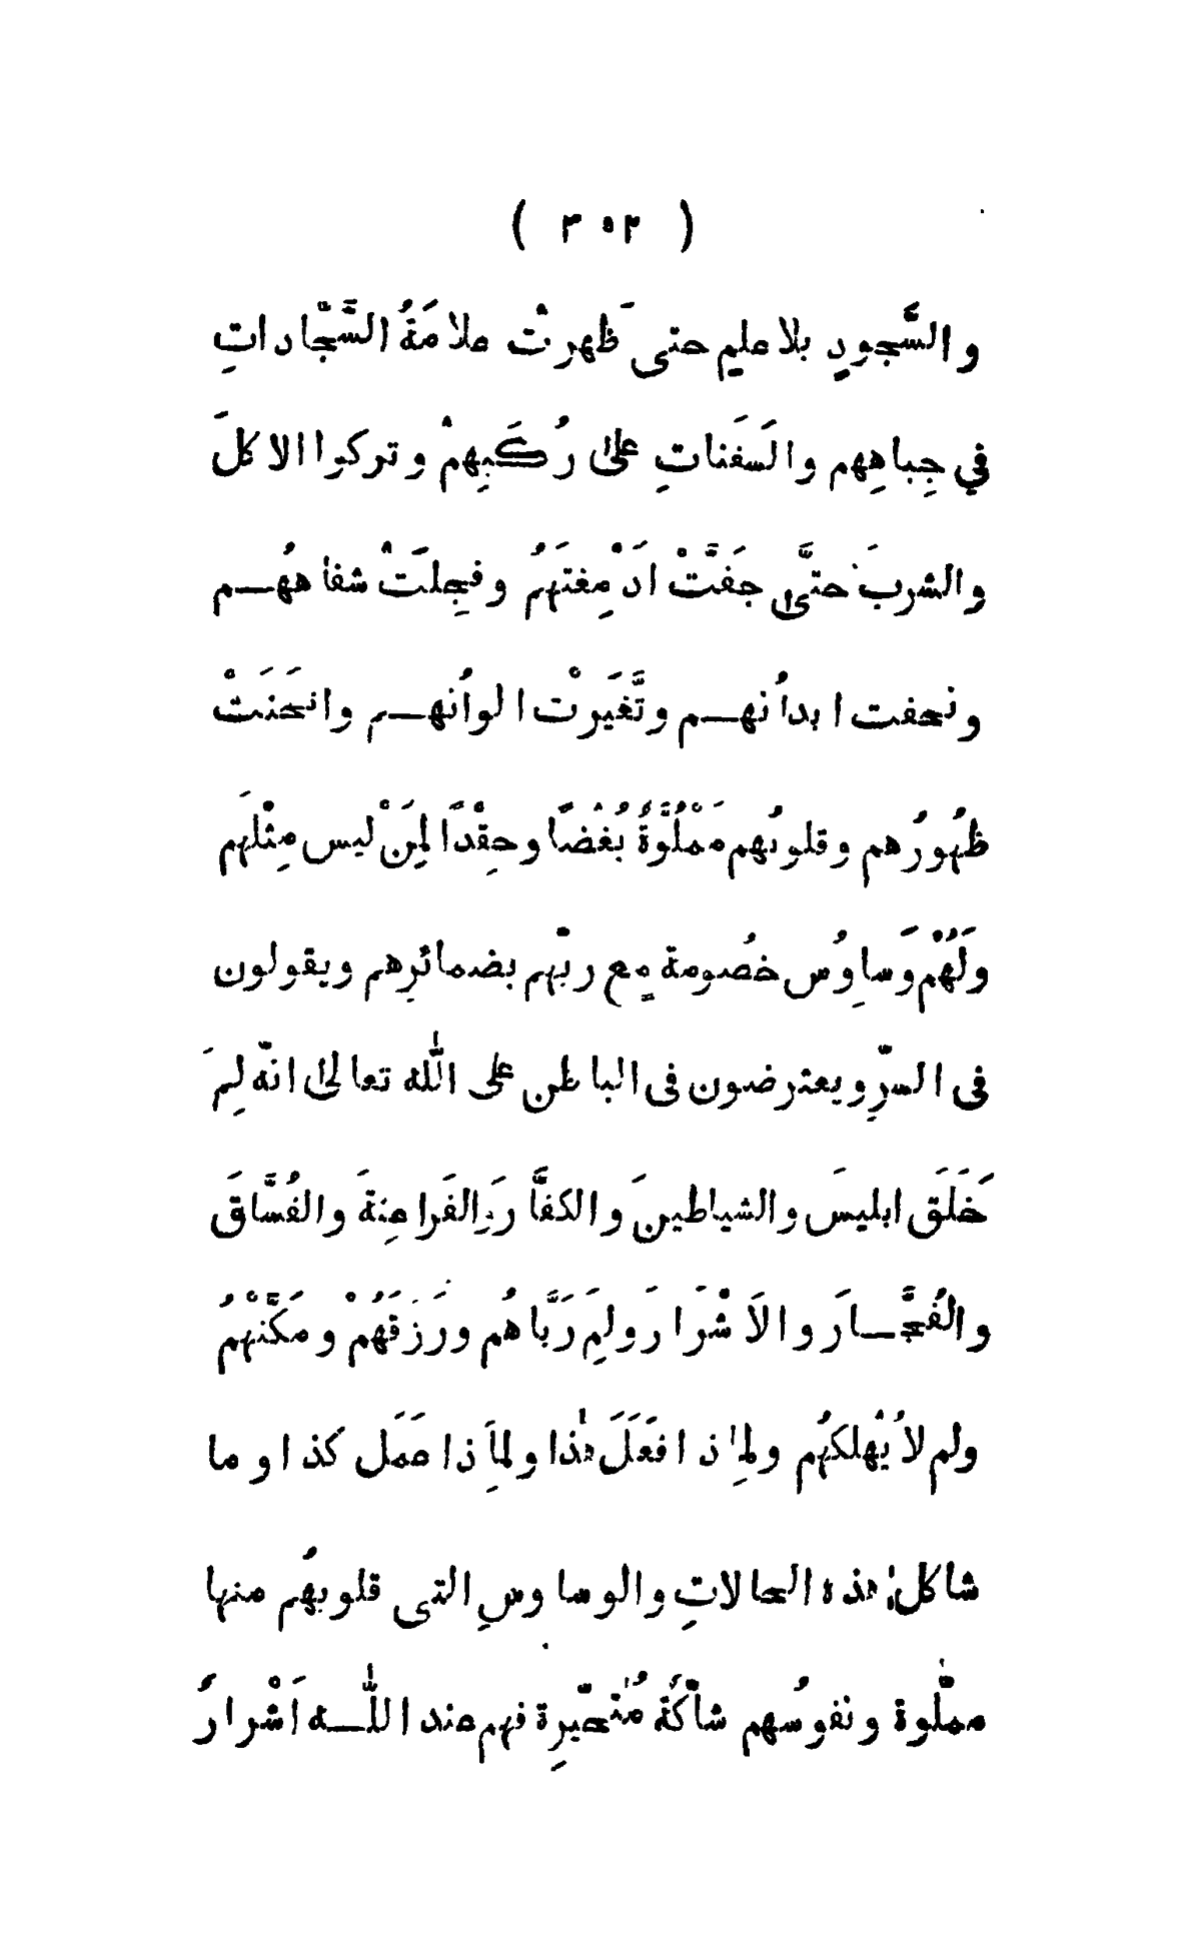 ( ٣٥٢ )
والسَّجودِ بلا علمٍ حتى ظَهرتْ علامَةُ السَّجّاداتِ
في جِباهِهم والسَفَناتِ علىٰ رُكَبِهِمْ وتركوا الاكلَ
والشربَ حتَّى جَفَّتْ اَدْمِغتَهَمُ وقحِلَتْ شفاهُهـم
ونحفت ابداُنهـم وتَّغَيرَتْ الواُنهـم وانحَنَتْ
ظهُورُهم وقلوبُهم مَمْلُوَّةٌ بُغْضًا وحِقْدًا لِمَنْ ليس مِثْلَهم
ولَهُمْ وَساوِسُ خصُومة مع ربّهم بضمائرِهم ويقولون
فى السرّ ويعترضون فى الباطن على اللّٰه تعالىٰ انّه لِمَ
خَلَق ابليسَ والشياطينَ والكفَّارَ والفَراعِنةَ والفُسَّاقَ
والفُجَّـارَ والاَشْرَارَ ولمِ رَبَّاهُم ورَزَقَهُمْ ومَكَّنَهْمُ
ولم لاُ يُهْلكهُم ولمِاذا فَعَلَ هٰذا ولمِاَذا عَمَل كذا وما
شاكل هذه الحالاتِ والوساوسِ التى قلوبهُم منها
مملّوة ونفوسُهم شاّكَةٌ مُتَحّيرِة فهم عند اللّٰـه اَشْرارٌ